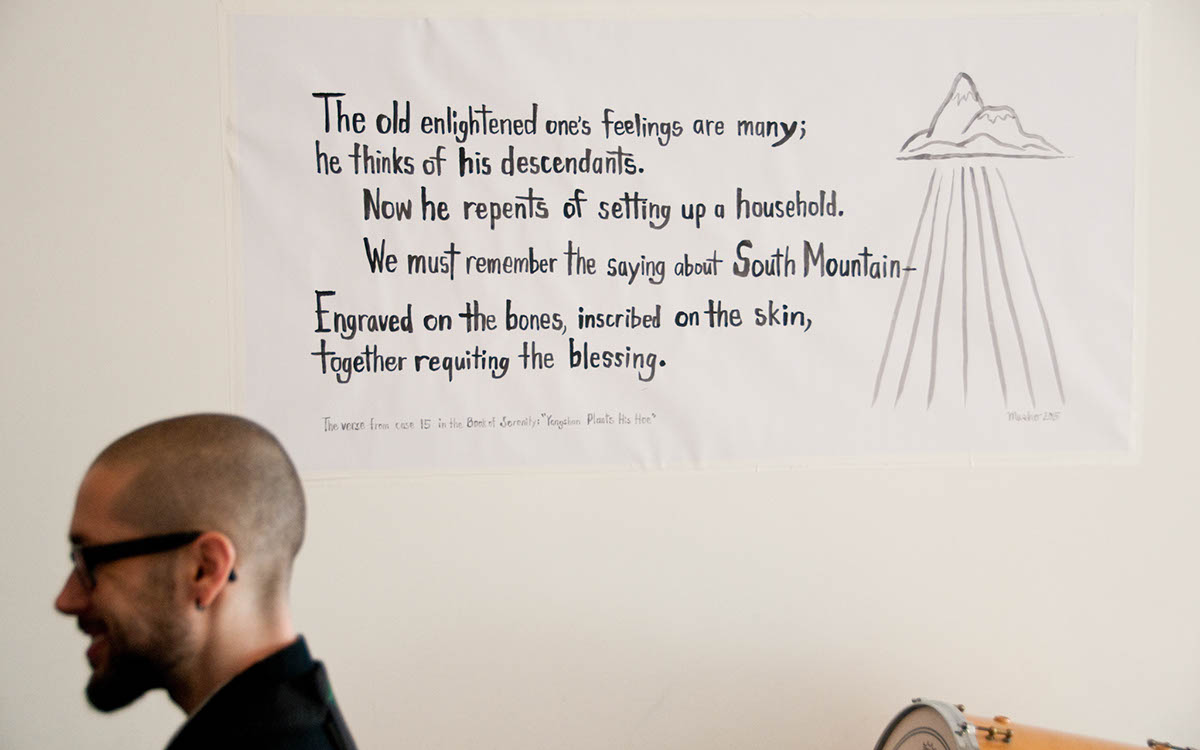 The old enlightened one's feelings are many;
he thinks of his descendants.
Now he repents of setting up a household.
We must remember the saying about South Mountain–
Engraved on the bones, inscribed on the skin,
together requiting the blessing.
The verse from case 15 in the Book of Serenity: "Yangshan Plants His Hoe"